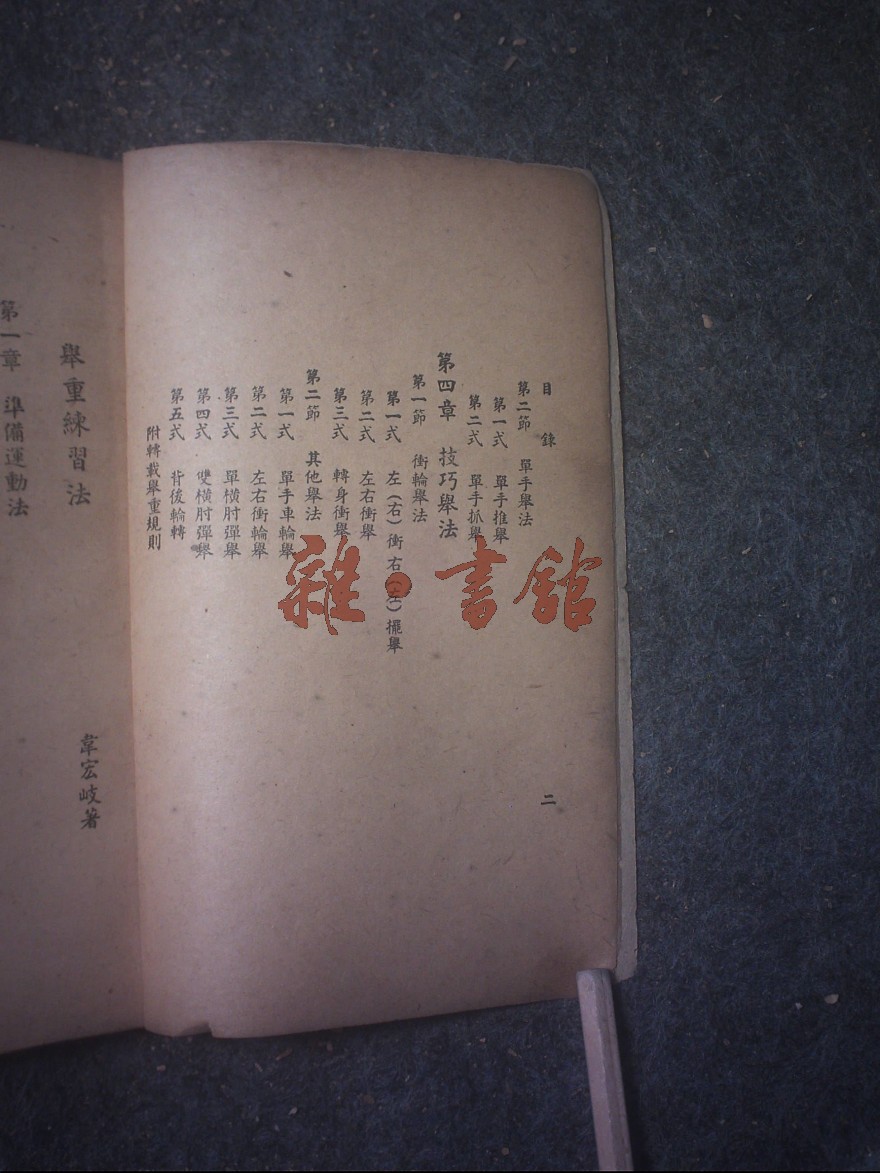 目錄
二
第二節 單手舉法
第一式 單手推舉
第二式 單手抓舉
第四章 技巧舉法
第一節 衝輪舉法
第一式 左(右)衝右(左)擺舉
第二式 左右衝舉
第三式 轉身衝舉
第二節 其他舉法
第一式 單手車輪舉
第二式 左右衝輪舉
第三式 單橫肘彈舉
第四式 雙橫肘彈舉
第五式 背後輪轉
附轉載舉重規則
舉重練習法
韋宏岐著
第一章 準備運動法
雜·書館